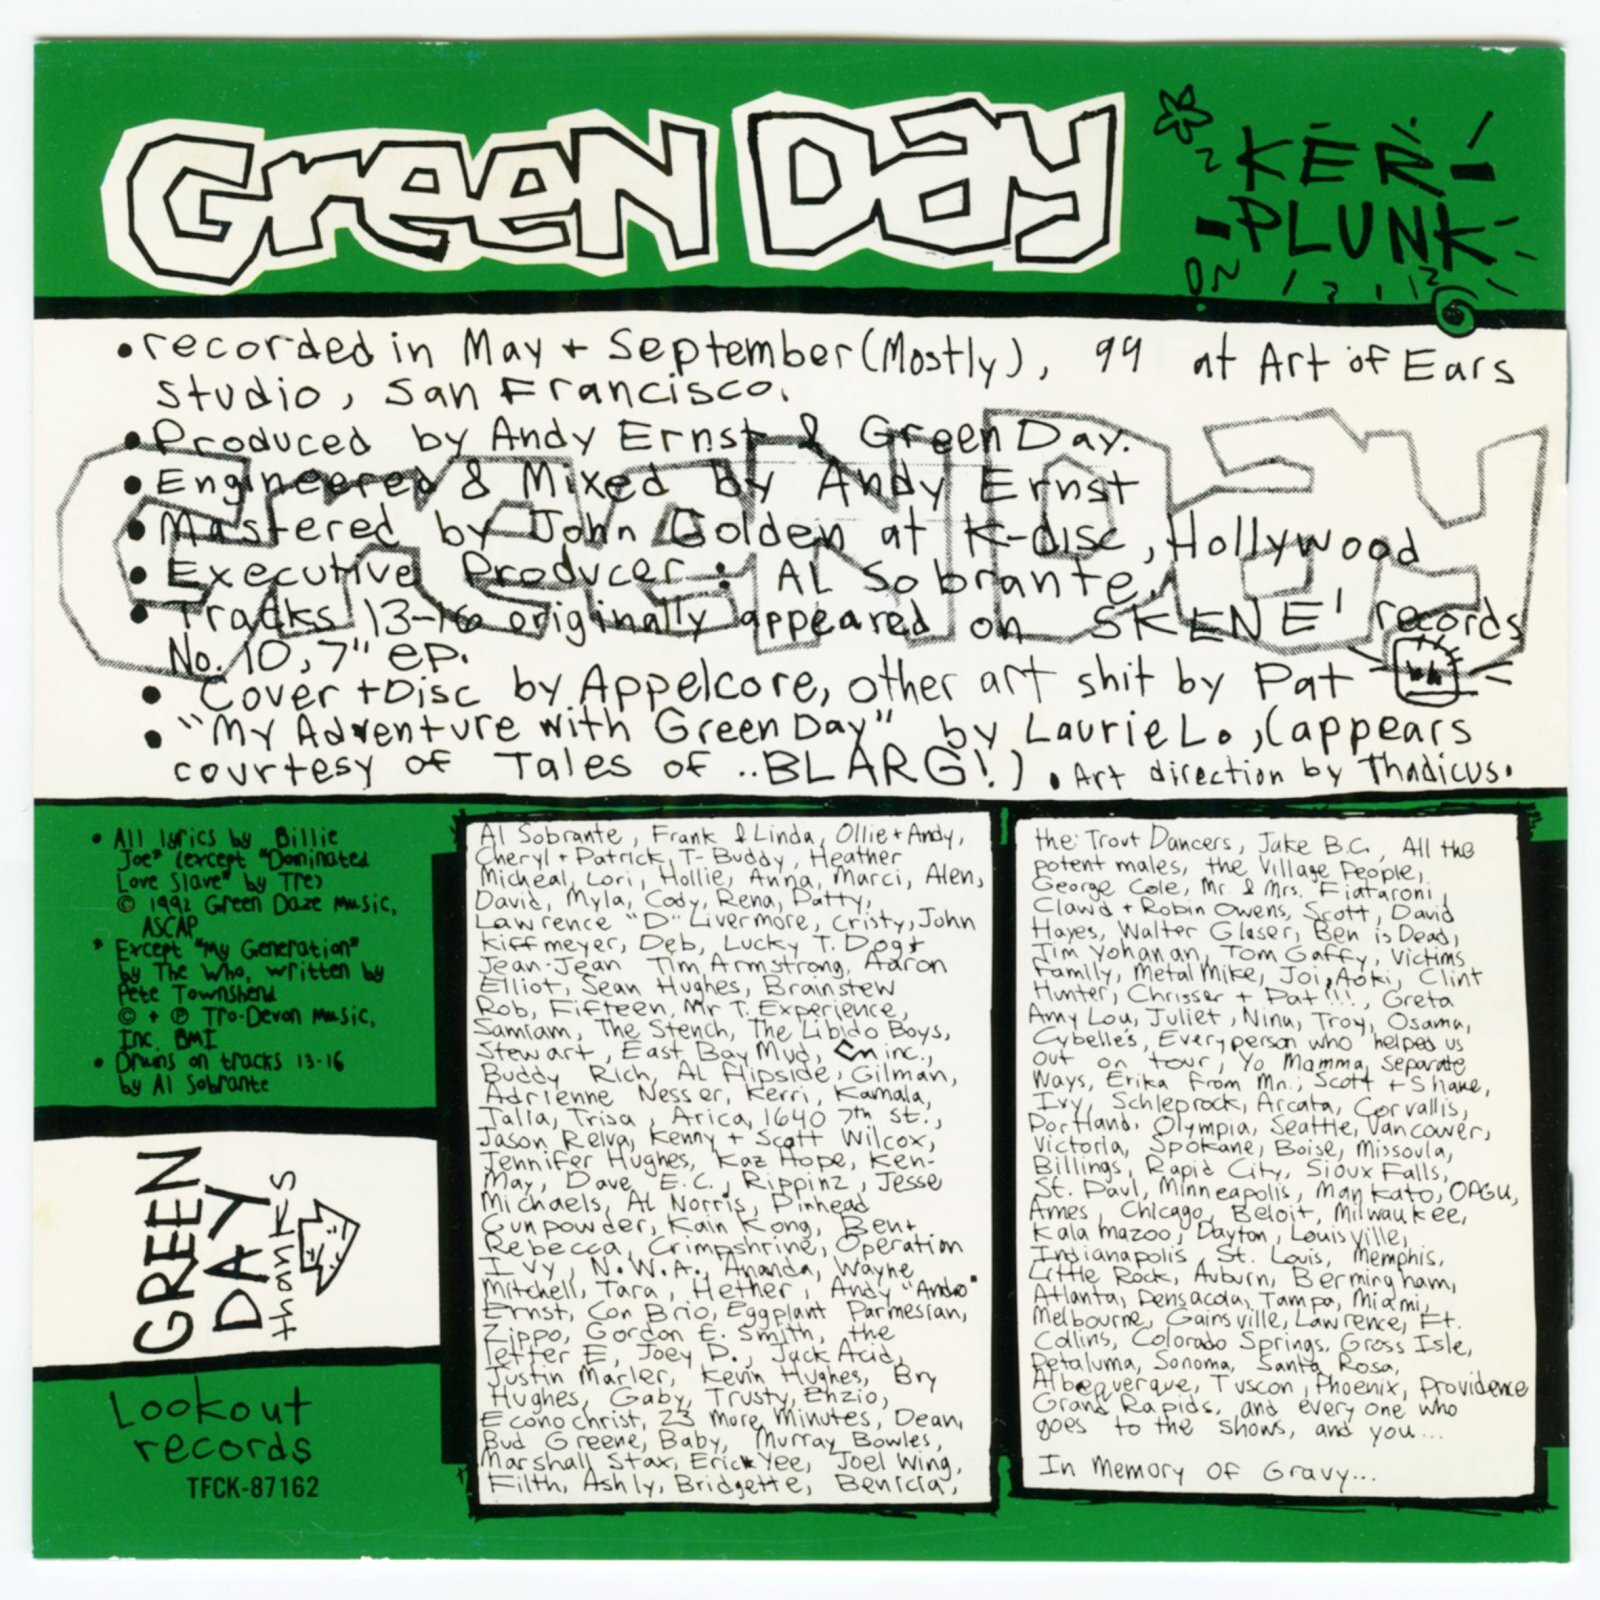 Green Day
KER-
-PLUNK
•recorded in May + September (Mostly), 99 at Art of Ears
studio, San Francisco.
• Produced by Andy Ernst & Green Day.
• Engineered & Mixed by Andy Ernst
• Mastered by John Golden at K-disc, Hollywood
• Executive Producer: AL Sobrante.
• Tracks 13-16 originally appeared on SKENE! records
No. 10, 7" ep.
• Cover + Disc by Appelcore, other art shit by Pat
• "My Adventure with Green Day" by Laurie L., (appears
courtesy of Tales of ..BLARG!) • Art direction by Thadicus.
• All lyrics by Billie
Joe" (except "Dominated
Love Slave" by Tre)
© 1992 Green Daze Music,
ASCAP
• Except "My Generation"
by The Who, written by
Pete Townshend
© + ℗ Tro-Devon Music,
Inc. BMI
• Drums on tracks 13-16
by Al Sobrante
GREEN
DAY
thanks
Lookout
records
TFCK-87162
Al Sobrante, Frank & Linda, Ollie + Andy,
Cheryl + Patrick, T-Buddy, Heather
Micheal, Lori, Hollie, Anna, Marci, Alen,
David, Myla, Cody, Rena, Patty,
Lawrence "D" Livermore, Cristy, John
Kiffmeyer, Deb, Lucky T. Dog +
Jean-Jean Tim Armstrong, Aaron
Elliot, Sean Hughes, Brainstew
Rob, Fifteen, Mr T. Experience,
Samiam, The Stench, The Libido Boys,
Stewart, East Bay Mud, inc.,
Buddy Rich, AL flipside, Gilman,
Adrienne Nesser, Kerri, Kamala,
Talla, Trisa, Arica, 1640 7th st.,
Jason Relva, Kenny + Scott Wilcox,
Jennifer Hughes, Kaz Hope, Ken-
May, Dave E.C., Rippinz, Jesse
Michaels, AL Norris, Pinhead
Gunpowder, Kain Kong, Ben+
Rebecca, Crimpshrine, Operation
Ivy, N.W.A., Ananda, Wayne
Mitchell, Tara, Hether, Andy "Ando"
Ernst, Con Brio, Eggplant Parmesian,
Zippo, Gordon E. Smith, the
letter E, Joey P., Jack Acid,
Justin Marler, Kevin Hughes, Bry
Hughes, Gaby, Trusty, Enzio,
Econochrist, 23 More Minutes, Dean,
Bud Greene, Baby, Murray Bowles,
Marshall Stax, Erick Yee, Joel Wing,
Filth, Ashly, Bridgette, Benicia,
the: Trout Dancers, Jake B.C., All the
potent males, the Village People,
George Cole, Mr. & Mrs. Fiataroni,
Clawd + Robin Owens, Scott, David
Hayes, Walter Glaser, Ben is Dead,
Jim Yohanan, Tom Gaffy, Victims
Family, Metal Mike, Joi, Aoki, Clint
Hunter, Chrisser + Pat!!!, Greta
Amy Lou, Juliet, Nina, Troy, Osama,
Cybelle's, Everyperson who helped us
out on tour, Yo Mamma, Separate
Ways, Erika from Mn., Scott + Shane,
Ivy, Schleprock, Arcata, Corvallis,
Portland, Olympia, Seattle, Vancouver,
Victoria, Spokane, Boise, Missoula,
Billings, Rapid City, Sioux Falls,
St. Paul, Minneapolis, Mankato, OPGU,
Ames, Chicago, Beloit, Milwaukee,
Kalamazoo, Dayton, Louisville,
Indianapolis St. Louis, Memphis,
Little Rock, Auburn, Bermingham,
Atlanta, Pensacola, Tampa, Miami,
Melbourne, Gainsville, Lawrence, Ft.
Collins, Colorado Springs, Gross Isle,
Petaluma, Sonoma, Santa Rosa,
Albequerque, Tuscon, Phoenix, Providence
Grand Rapids, and every one who
goes to the shows, and you...
In Memory OF Gravy...